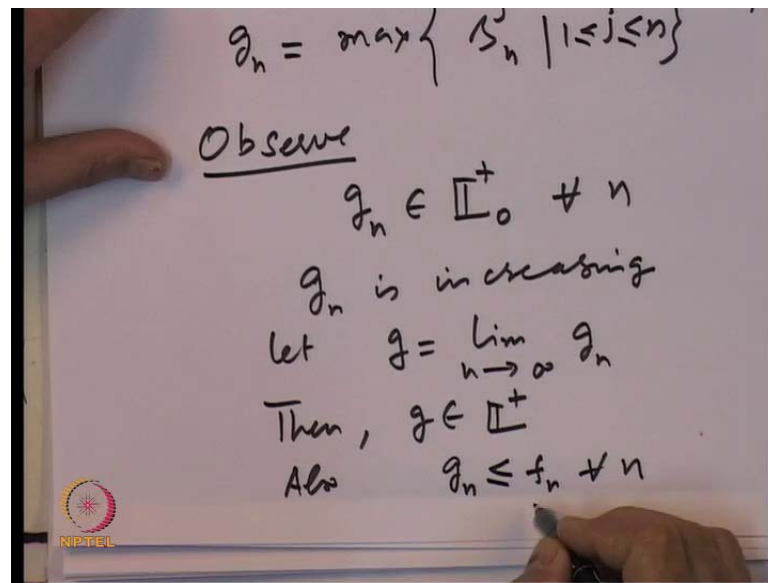 g_n = max{ s_n^j | 1≤j≤n}
Observe
g_n ∈ 𝕃_0^+ ∀ n
g_n is increasing
let g = lim_{n→∞} g_n
Then, g ∈ 𝕃^+
Also g_n ≤ f_n ∀ n
NPTEL